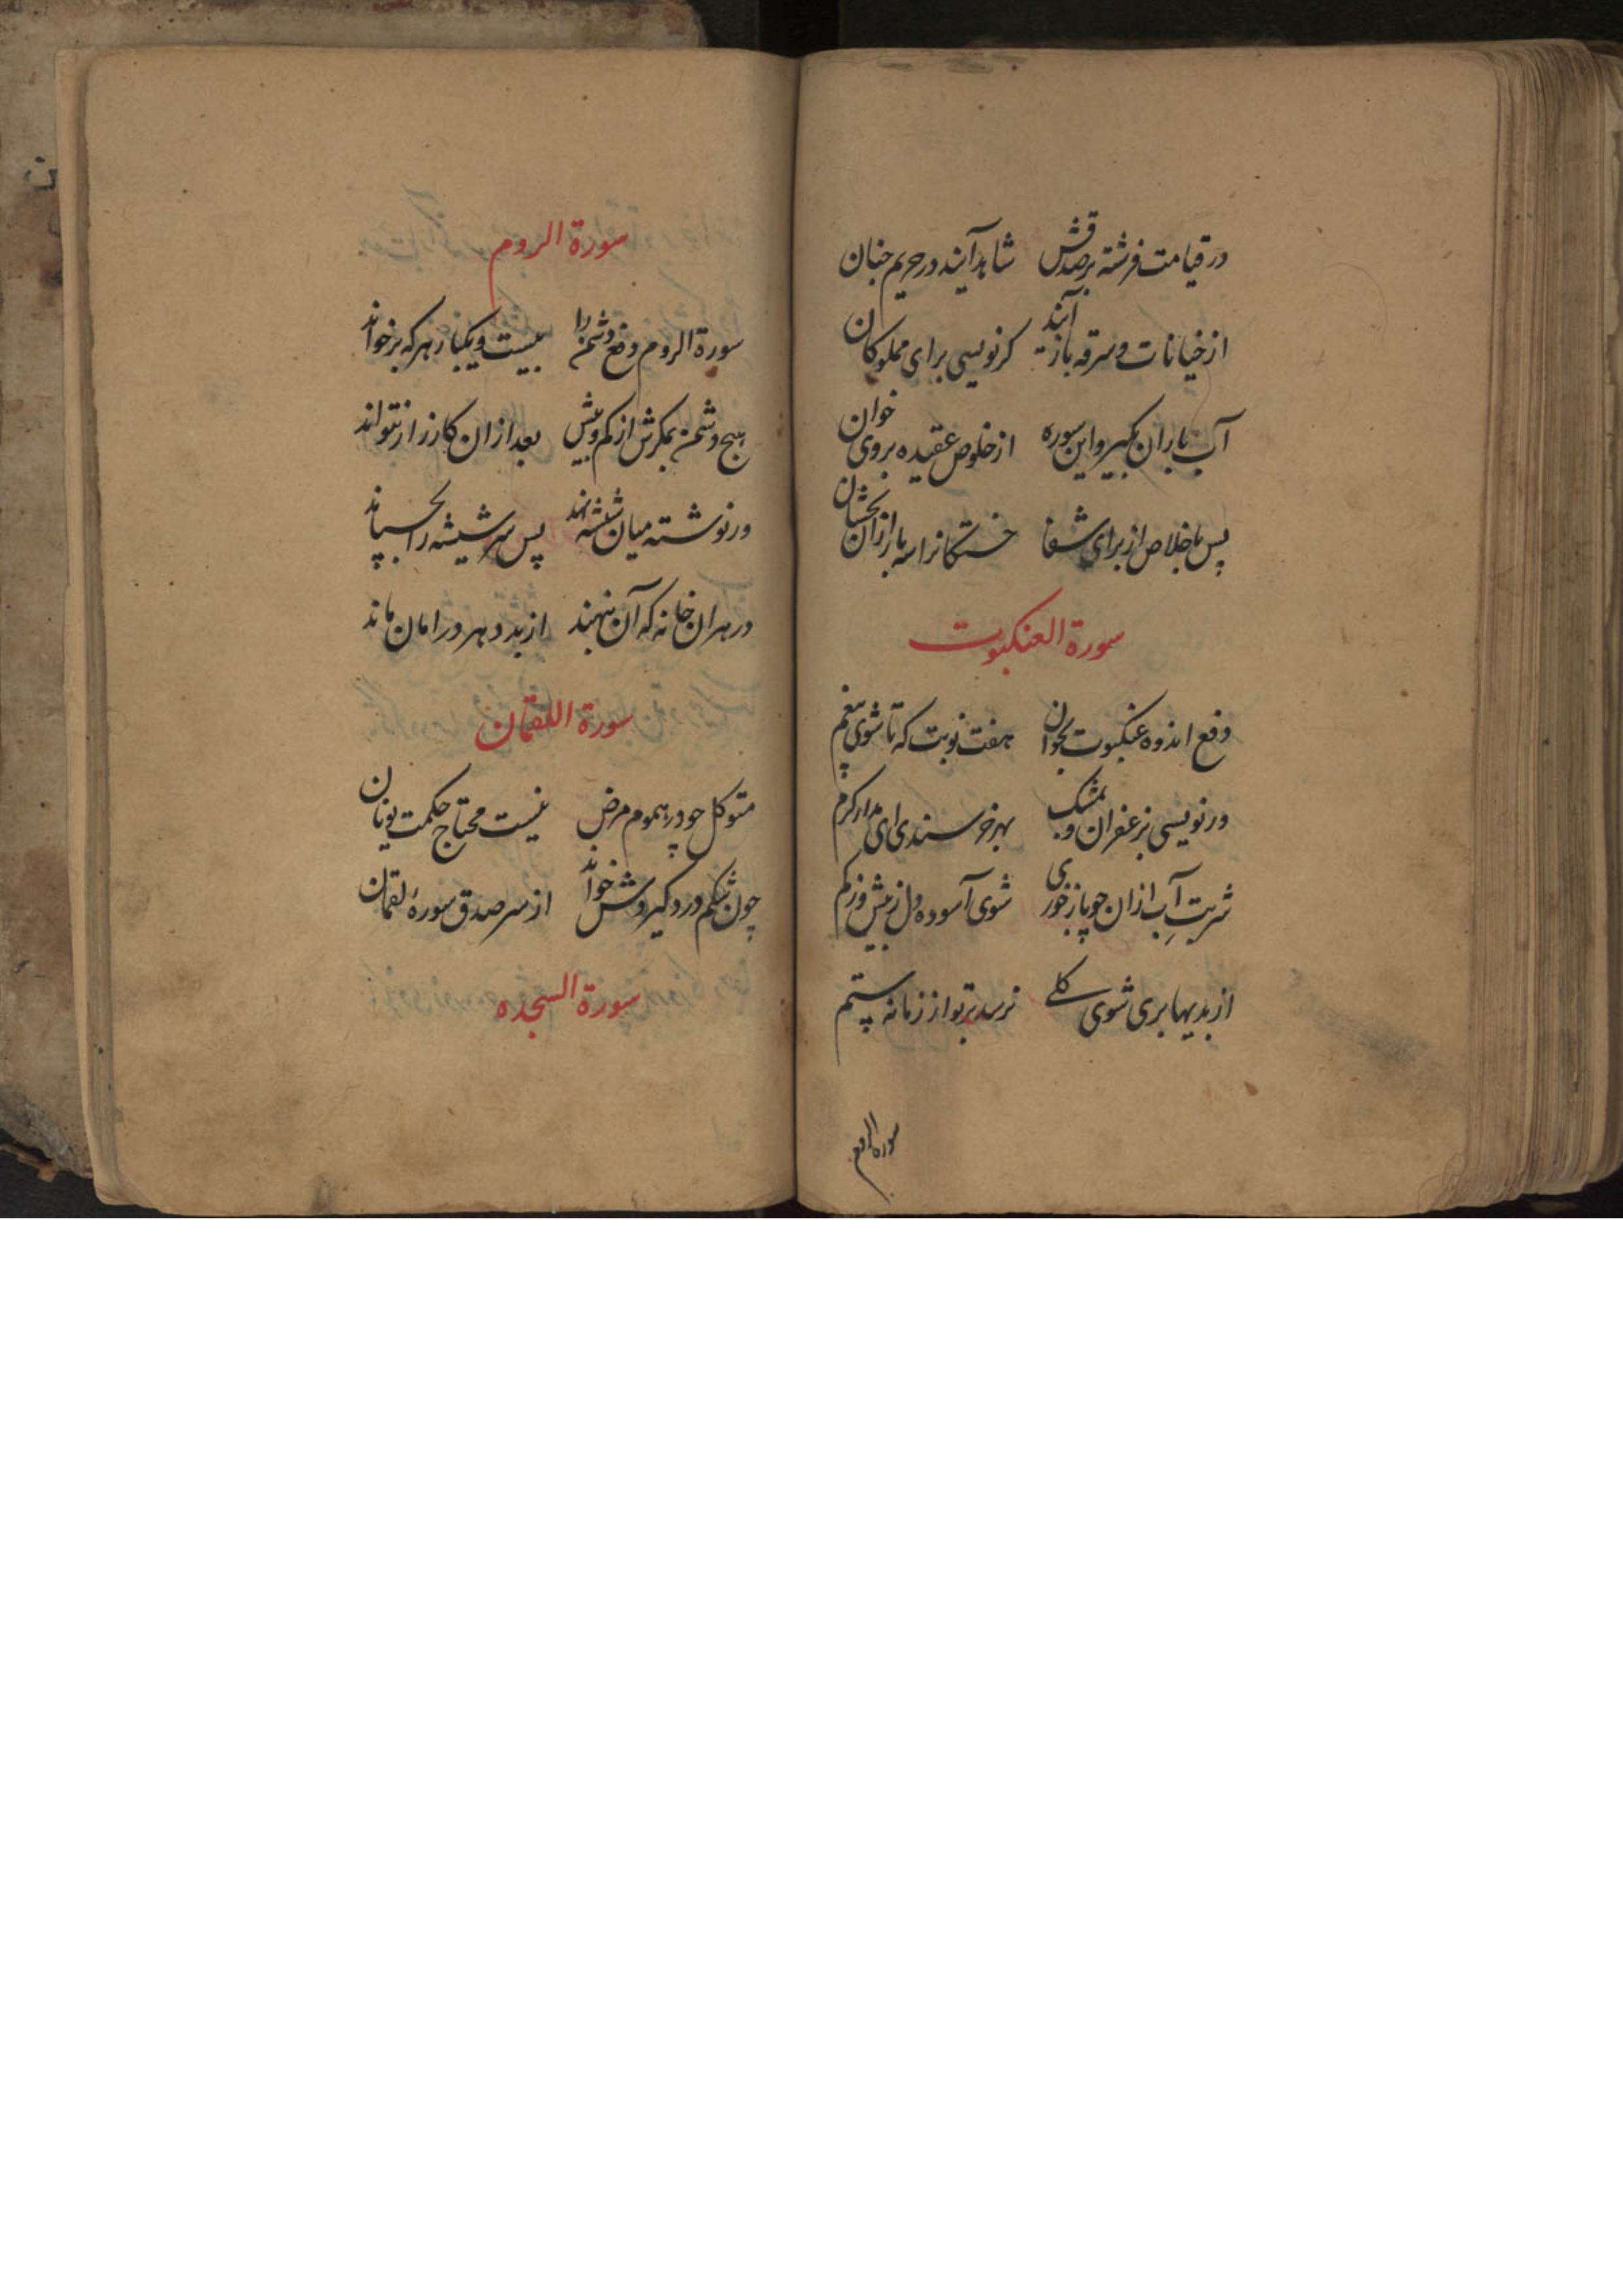 در قیامت فرشته بر صدقش شاهد آیند در حریم جنان
از خیانات و سرقه باز آیند کر نویسی برای مملوکان
آب باران بکیر و این سوره از خلوص عقیده بروی خوان
پس باخلاص از برای شفا خستکانرا سه بار ازان بخشان
سورة العنکبوت
دفع اندوه عنکبوت بخوان هفت نوبت که تا شوی بیغم
ور نویسی بزعفران و بمشک بهر خرسندی ای مدار کرم
شربت آب ازان چو باز خوری شوی آسوده دل ز بیش و ز کم
از بدیها بری شوی کلے نرسد بر تو از زمانه ستم
سوره الروم
سورة الروم
سورة الروم دفع دشمن را بیست و یکبار هر که بر خواند
هیچ دشمن بمکرش از کم و بیش بعد ازان کارزار نتواند
ور نوشته میان شیشه نهد پس سر شیشه را بچسپاند
در هران خانه که آن بنهند از بد دهر در امان ماند
سورة اللقمان
متوکل چو در هموم مرض نیست محتاج حکمت یونان
چون شکم درد کیردش خواند از سر صدق سورۀ لقمان
سورة السجده